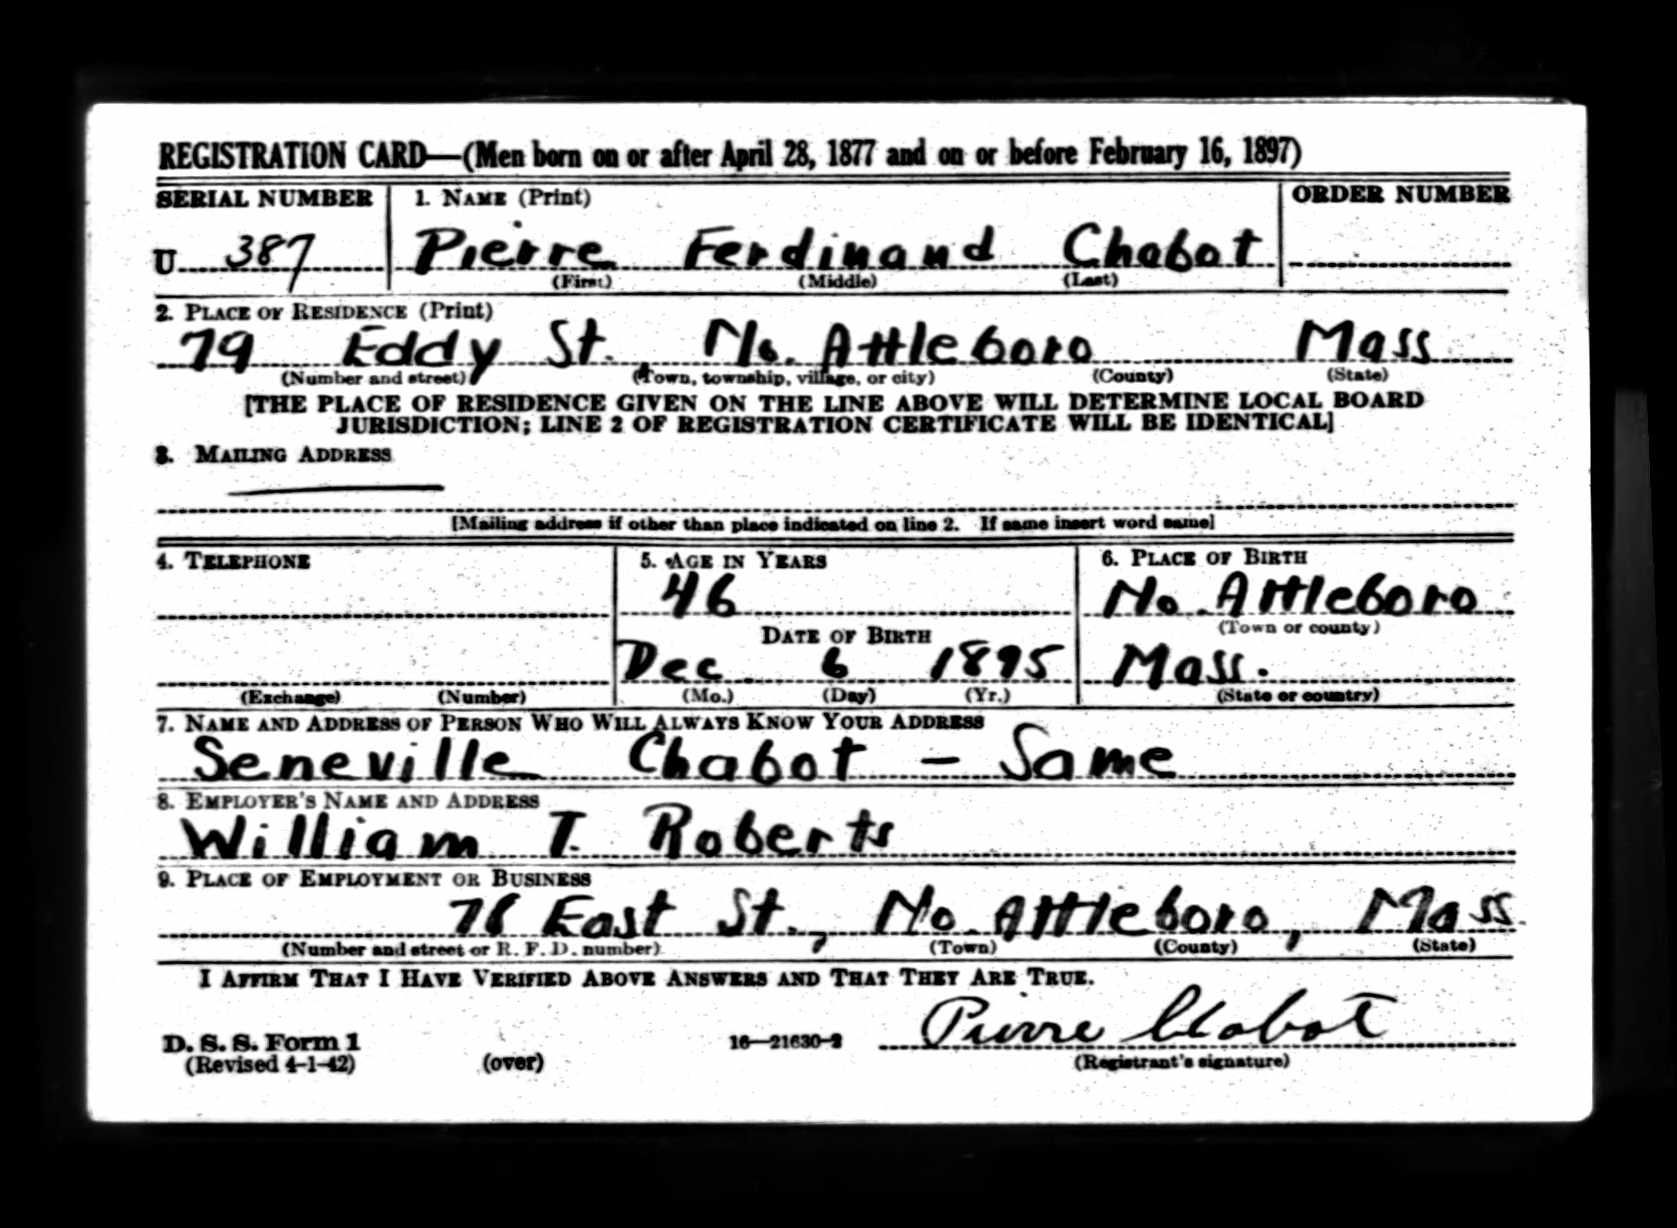 REGISTRATION CARD—(Men born on or after April 28, 1877 and on or before February 16, 1897)
SERIAL NUMBER 1. NAME (Print) ORDER NUMBER
U 387 Pierre Ferdinand Chabot
(First) (Middle) (Last)
2. PLACE OF RESIDENCE (Print)
79 Eddy St., No. Attleboro Mass
(Number and street) (Town, township, village, or city) (County) (State)
[THE PLACE OF RESIDENCE GIVEN ON THE LINE ABOVE WILL DETERMINE LOCAL BOARD
JURISDICTION; LINE 2 OF REGISTRATION CERTIFICATE WILL BE IDENTICAL]
3. MAILING ADDRESS
[Mailing address if other than place indicated on line 2. If same insert word same]
4. TELEPHONE 5. AGE IN YEARS 6. PLACE OF BIRTH
46 No. Attleboro
DATE OF BIRTH (Town or county)
Dec 6 1895 Mass.
(Exchange) (Number) (Mo.) (Day) (Yr.) (State or country)
7. NAME AND ADDRESS OF PERSON WHO WILL ALWAYS KNOW YOUR ADDRESS
Seneville Chabot – Same
8. EMPLOYER'S NAME AND ADDRESS
William T. Roberts
9. PLACE OF EMPLOYMENT OR BUSINESS
East St., No. Attleboro, Mass.
(Number and street or R. F. D. number) (Town) (County) (State)
I AFFIRM THAT I HAVE VERIFIED ABOVE ANSWERS AND THAT THEY ARE TRUE.
Pierre Chabot
D. S. S. Form 1 16—21630-2
(Revised 4-1-42) (over) (Registrant's signature)